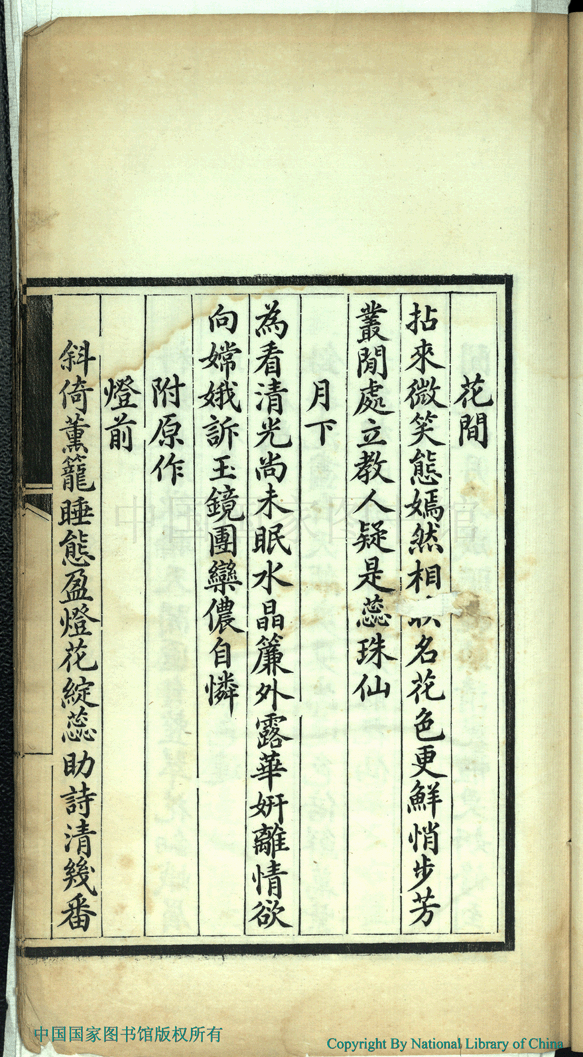 花間
拈來微笑態嫣然相名花色更鮮悄步芳
叢閒處立教人疑是蕊珠仙
月下
為看清光尚未眠水晶簾外露華妍離情欲
向嫦娥訴玉鏡團欒儂自憐
附原作
燈前
斜倚薰籠睡態盈燈花綻蕊助詩清幾番
中国国家图书馆
中国国家图书馆版权所有
Copyright By National Library of China